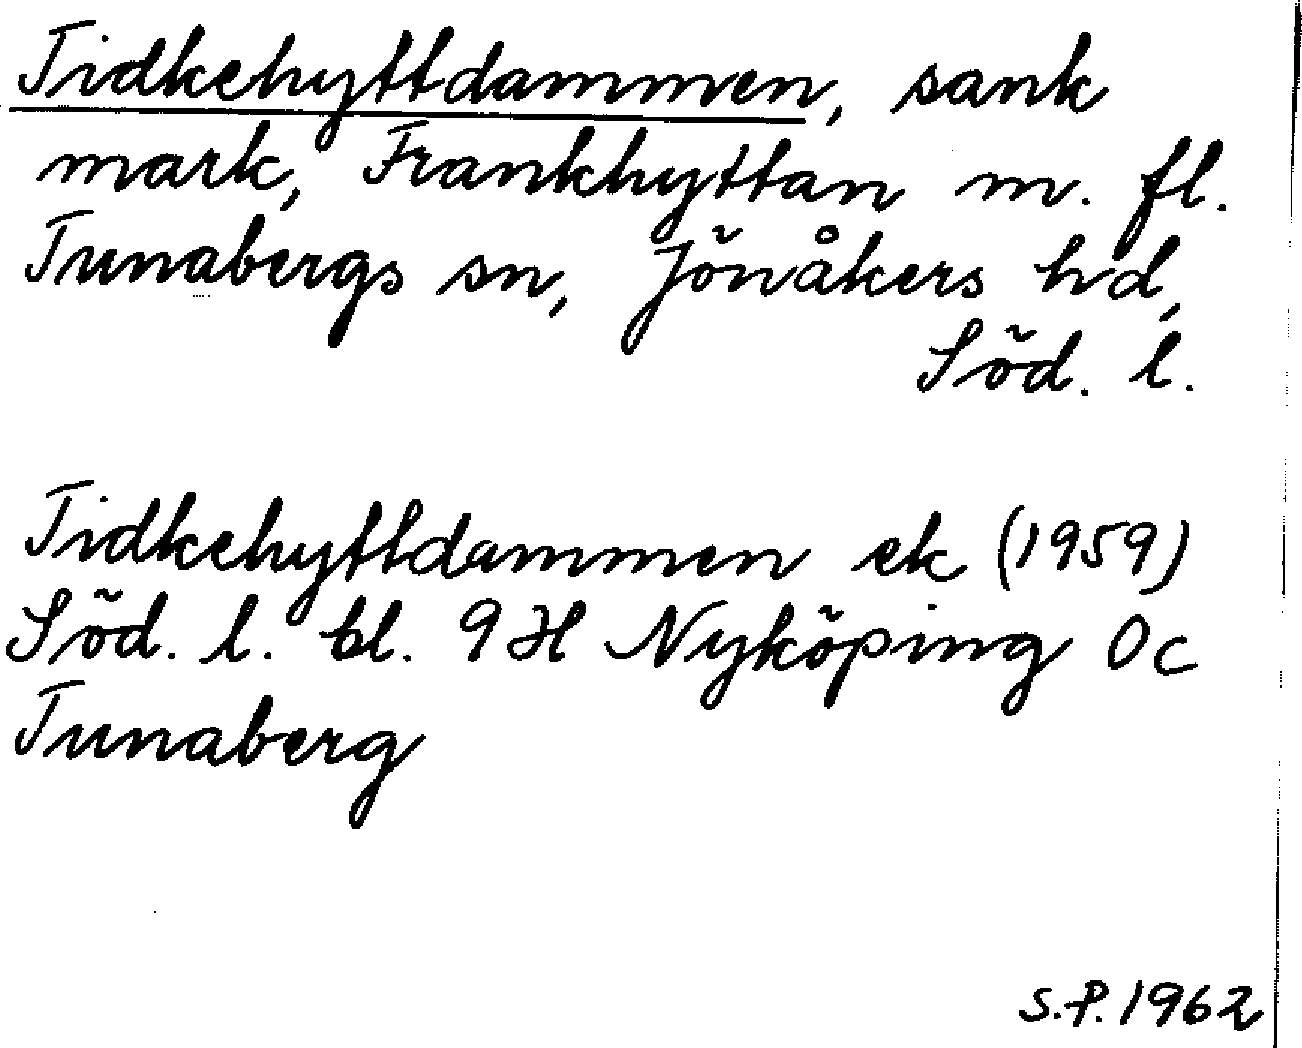 Tidkehyttdammen, sank
mark, Frankhyttan m. fl.
Tunabergs sn, Jönåkers hd,
Söd. l.
Tidkehyttdammen ek (1959)
Söd. l. bl. 9 H Nyköping 0c
Tunaberg
S.P. 1962